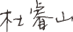 杜睿山